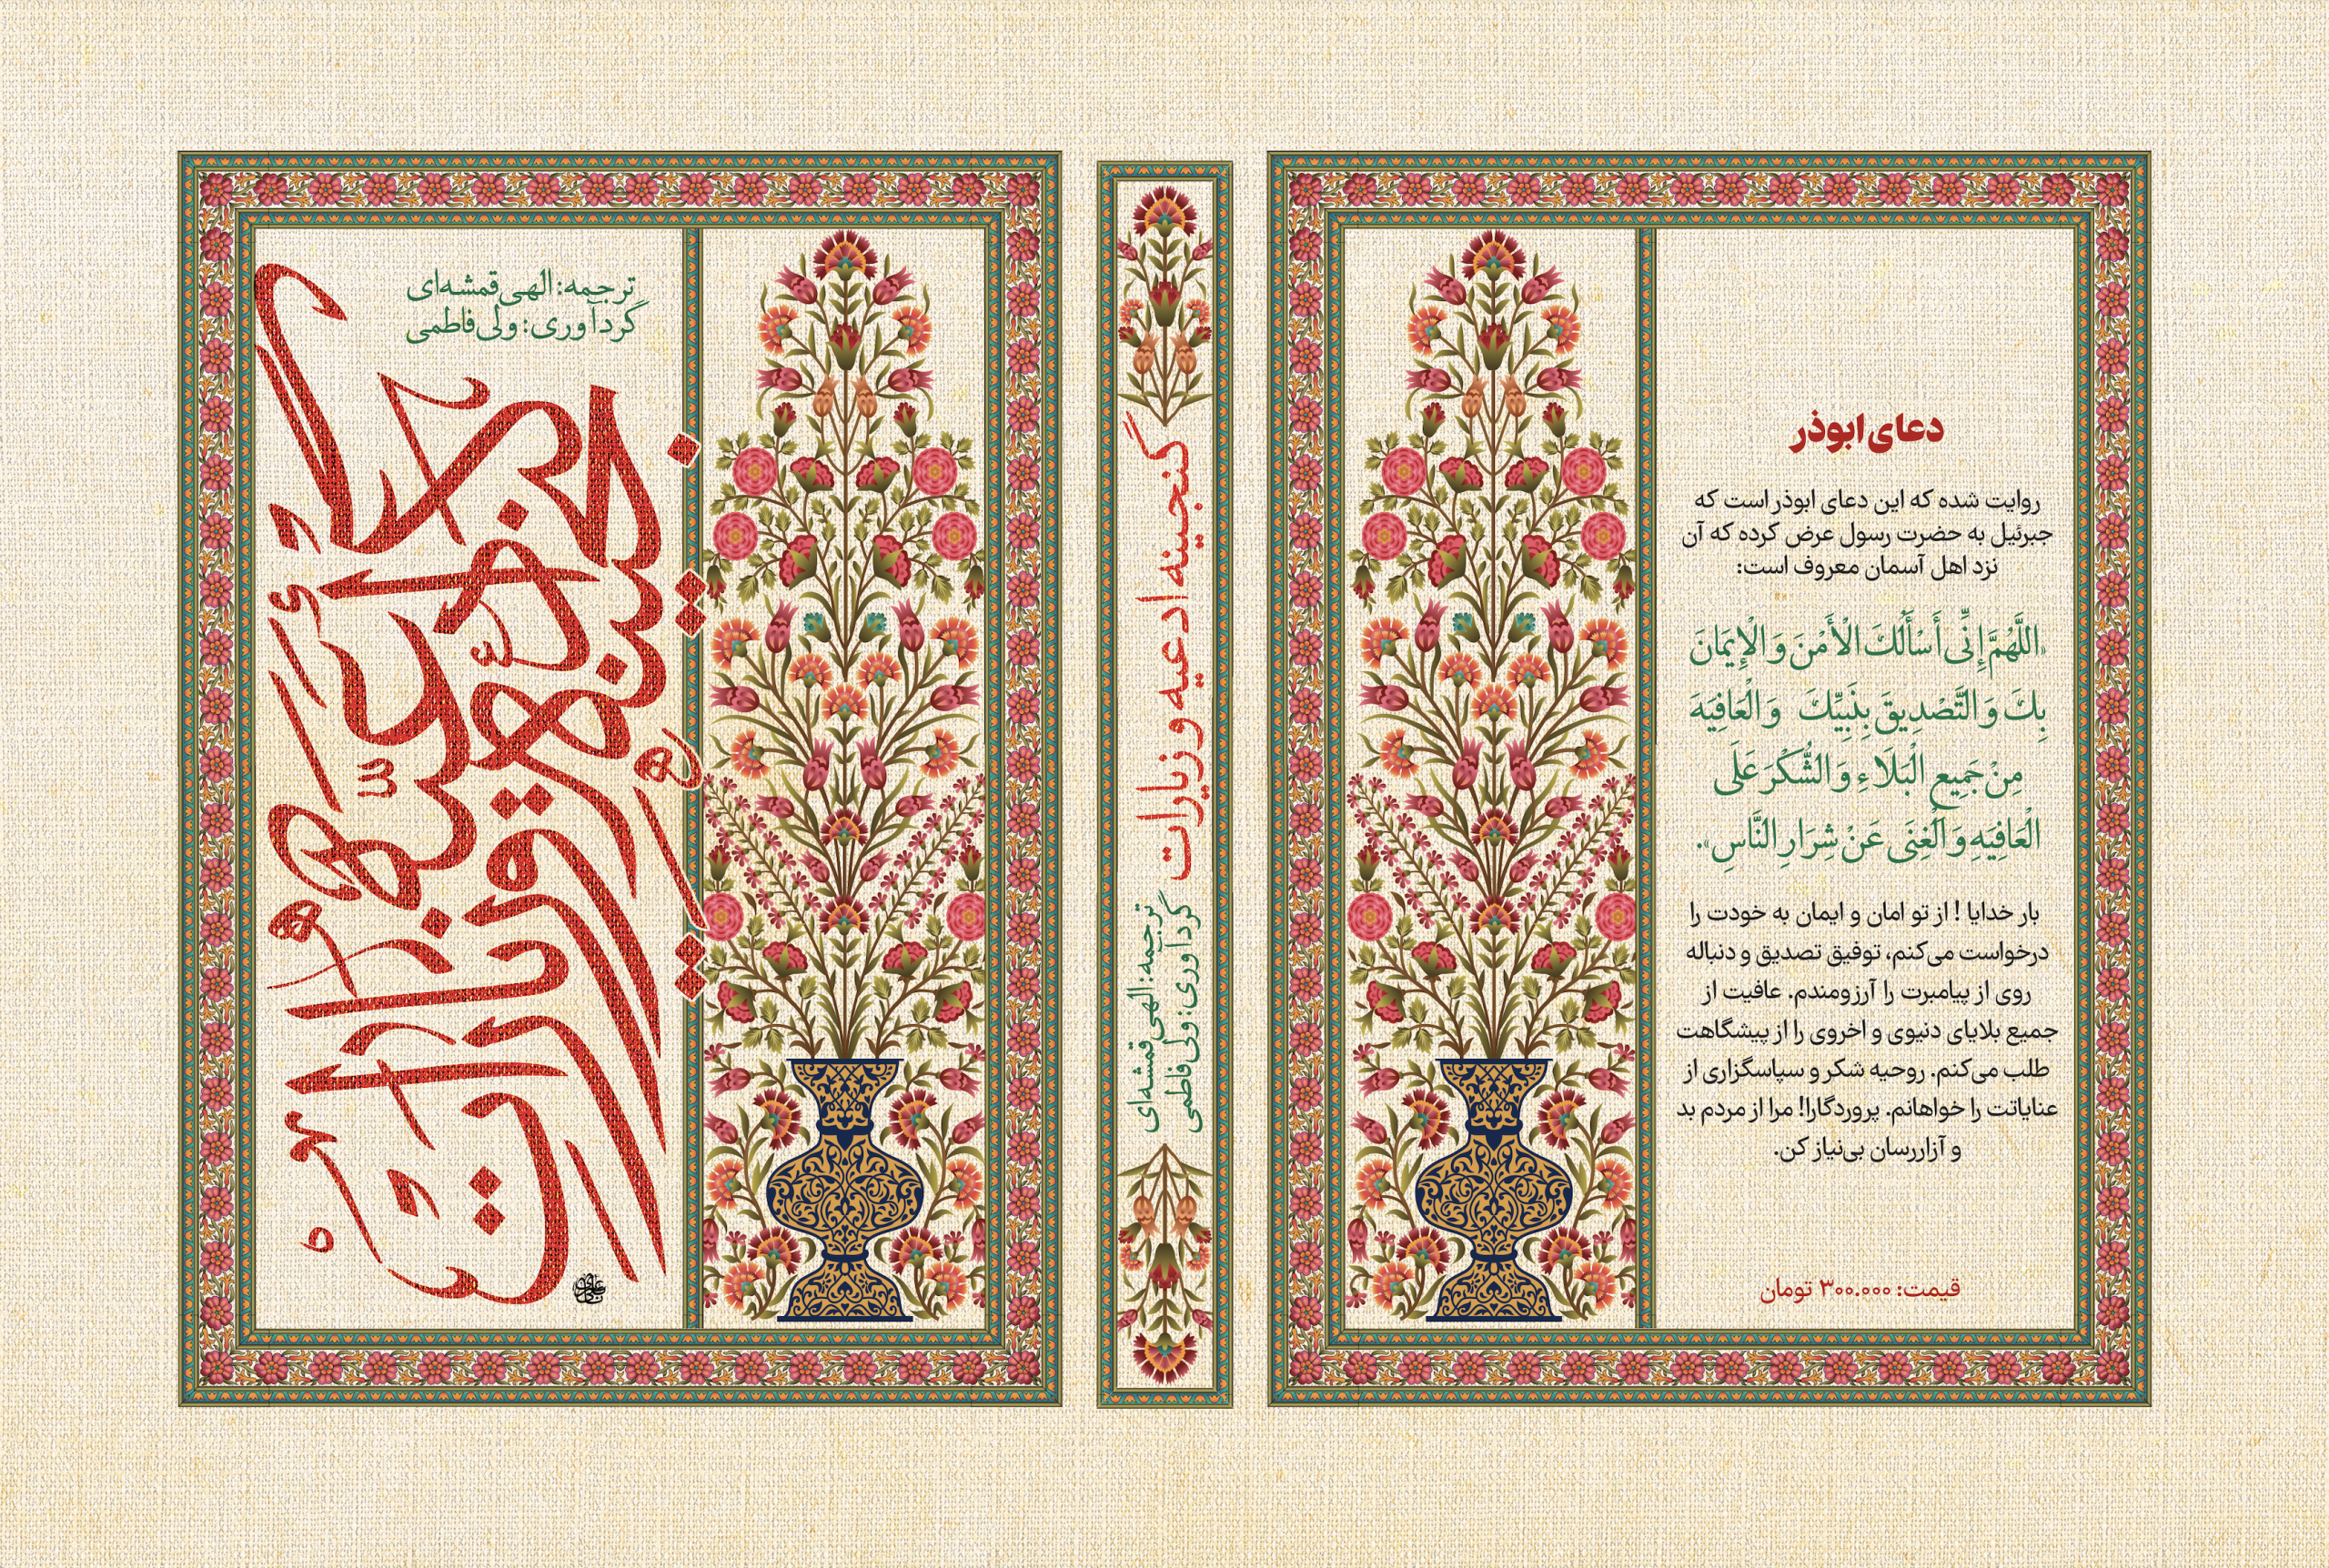 ترجمه: الهی قمشه‌ای
گردآوری: ولی فاطمی
گنجینه ادعیه و زیارات
گنجینه ادعیه و زیارات
ترجمه: الهی قمشه‌ای
گردآوری: ولی فاطمی
دعای ابوذر
روایت شده که این دعای ابوذر است که
جبرئیل به حضرت رسول عرض کرده که آن
نزد اهل آسمان معروف است:
«اللَّهُمَّ إِنِّی أَسْأَلُکَ الْأَمْنَ وَ الْإِیمَانَ
بِکَ وَ التَّصْدِیقَ بِنَبِیِّکَ وَ الْعَافِیَهَ
مِنْ جَمِیعِ الْبَلَاءِ وَ الشُّکْرَ عَلَی
الْعَافِیَهِ وَ الْغِنَی عَنْ شِرَارِ النَّاسِ».
بار خدایا ! از تو امان و ایمان به خودت را
درخواست می‌کنم، توفیق تصدیق و دنباله
روی از پیامبرت را آرزومندم. عافیت از
جمیع بلایای دنیوی و اخروی را از پیشگاهت
طلب می‌کنم. روحیه شکر و سپاسگزاری از
عنایاتت را خواهانم. پروردگارا! مرا از مردم بد
و آزاررسان بی‌نیاز کن.
قیمت: ۳۰۰.۰۰۰ تومان